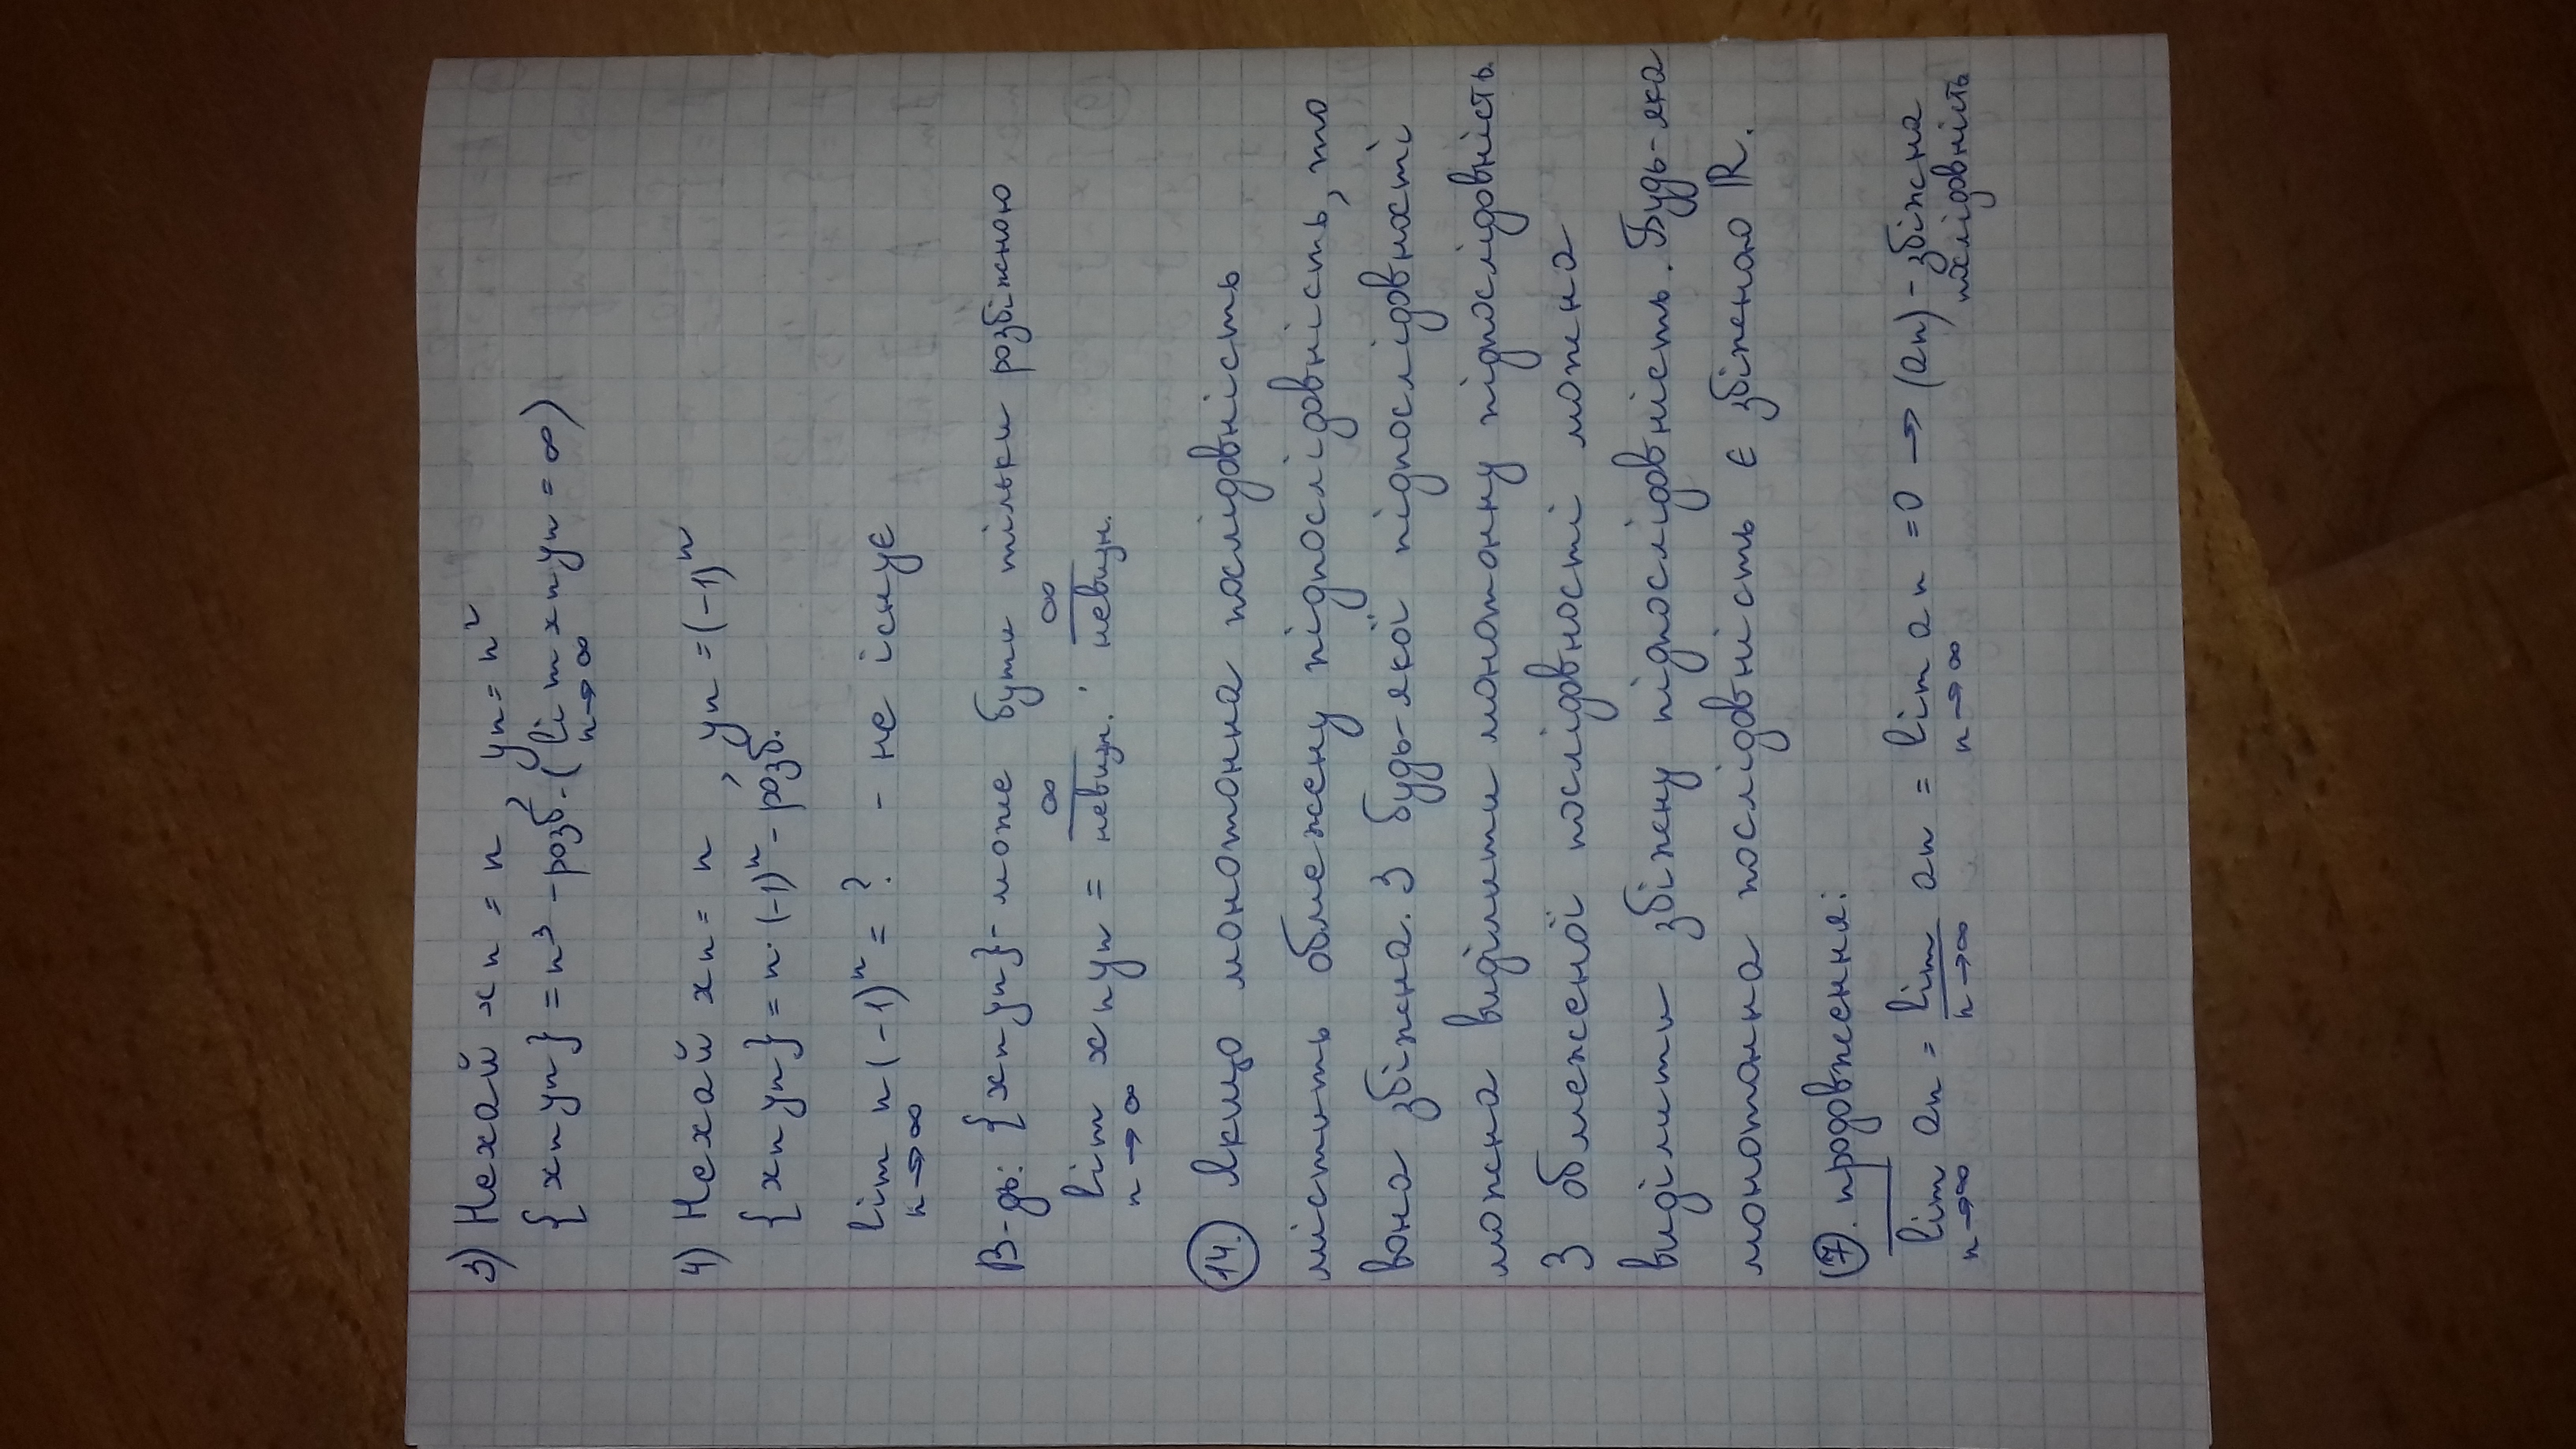 3) Нехай xn = n, yn = n²
{xn yn} = n³ - розб. (lim n→∞ xn yn = ∞)
4) Нехай xn = n, yn = (-1)ⁿ
{xn yn} = n·(-1)ⁿ - розб.
lim n→∞ n(-1)ⁿ = ? - не існує
В-дь: {xn yn} - може бути тільки розбіжною
lim n→∞ xn yn = ∞/невизн. ; ∞/невизн.
14. Якщо монотонна послідовність
містить обмежену підпослідовність, то
вона збіжна. З будь-якої підпослідовності
можна виділити монотонну підпослідовність.
З обмеженої послідовності можна
виділити збіжну підпослідовність. Будь-яка
монотонна послідовність є збіжною ℝ.
7. продовження:
l̅i̅m̅ n→∞ an = l̲i̲m̲ n→∞ an = lim n→∞ an = 0 → (an) - збіжна послідовність